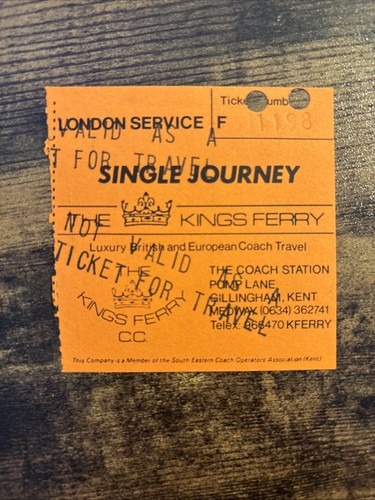 Ticket Number
LONDON SERVICE F
1198
VALID AS A
T FOR TRAVEL
SINGLE JOURNEY
THE KINGS FERRY
NOT VALID AS A
TICKET FOR TRAVEL
Luxury British and European Coach Travel
THE
KINGS FERRY
C.C.
THE COACH STATION
PUMP LANE,
GILLINGHAM, KENT
MEDWAY (0634) 362741
Telex: 966470 KFERRY
This Company is a Member of the South Eastern Coach Operators Association (Kent)